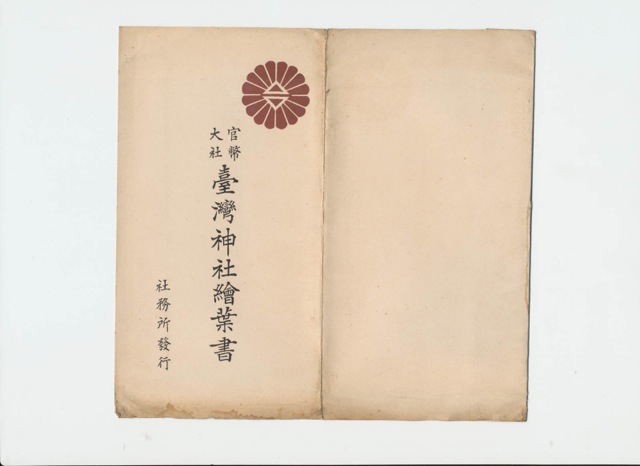 官幣大社
臺灣神社繪葉書
社務所發行